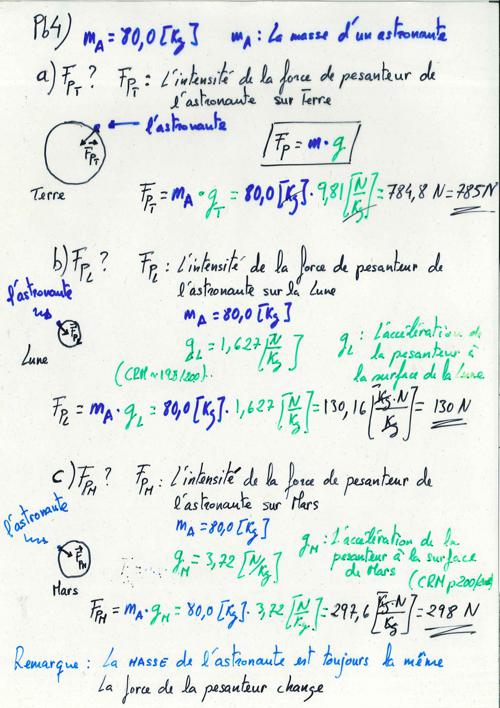 Pb4) m_A = 80,0 [Kg] m_A : La masse d'un astronaute
a) F_PT ? F_PT : L'intensité de la force de pesanteur de
l'astronaute sur Terre
l'astronaute
F_PT
F_P = m·g
Terre
F_PT = m_A · g_T = 80,0 [Kg] · 9,81 [N/Kg] = 784,8 N = 785 N
b) F_PL ? F_PL : L'intensité de la force de pesanteur de
l'astronaute sur la Lune
l'astronaute
m_A = 80,0 [Kg]
F_PL
Lune
g_L = 1,627 [N/Kg]
g_L : L'accélération de
la pesanteur à
la surface de la Lune
F_PL = m_A · g_L = 80,0 [Kg] · 1,627 [N/Kg] = 130,16 [Kg·N/Kg] = 130 N
c) F_PM ? F_PM : L'intensité de la force de pesanteur de
l'astronaute sur Mars
l'astronaute
m_A = 80,0 [Kg]
F_PM
Mars
g_M = 3,72 [N/Kg]
g_M : L'accélération de la
pesanteur à la surface
de Mars
F_PM = m_A · g_M = 80,0 [Kg] · 3,72 [N/Kg] = 297,6 [Kg·N/Kg] = 298 N
Remarque : La MASSE de l'astronaute est toujours la même
La force de la pesanteur change